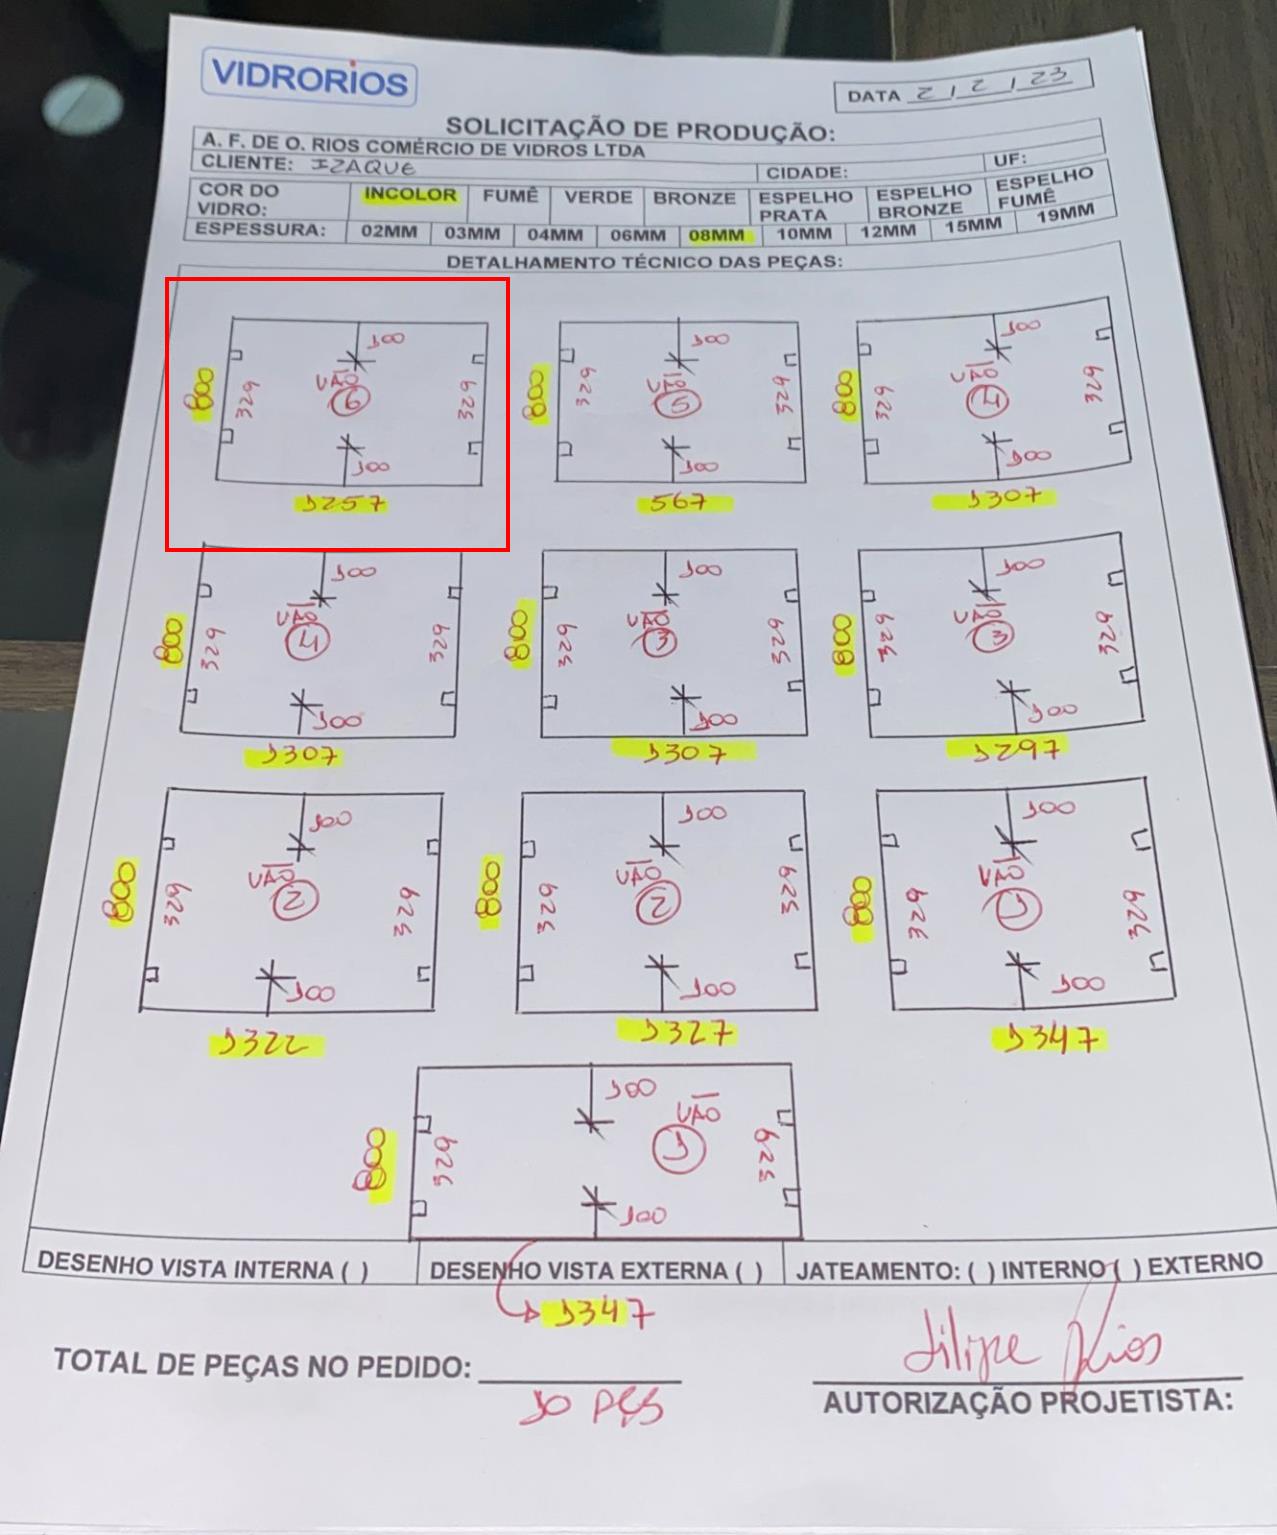 VIDRORIOS
DATA 2 / 2 / 23
SOLICITAÇÃO DE PRODUÇÃO:
A. F. DE O. RIOS COMÉRCIO DE VIDROS LTDA
CLIENTE: IZAQUE CIDADE: UF:
COR DO VIDRO: INCOLOR FUMÊ VERDE BRONZE ESPELHO PRATA ESPELHO BRONZE ESPELHO FUMÊ
ESPESSURA: 02MM 03MM 04MM 06MM 08MM 10MM 12MM 15MM 19MM
DETALHAMENTO TÉCNICO DAS PEÇAS:
100 100 100
VÃO VÃO VÃO
800 329 6 329 800 329 5 329 800 329 4 329
100 100 100
1257 567 1307
100 100 100
VÃO VÃO VÃO
800 329 4 329 800 329 3 329 800 329 3 329
100 100 100
1307 1307 1297
100 100 100
VÃO VÃO VÃO
800 329 2 329 800 329 2 329 800 329 1 329
100 100 100
1322 1327 1347
100 VÃO
800 329 1 329
100
DESENHO VISTA INTERNA ( ) DESENHO VISTA EXTERNA ( ) JATEAMENTO: ( ) INTERNO ( ) EXTERNO
1347
Filipe Rios
TOTAL DE PEÇAS NO PEDIDO:
10 PÇS
AUTORIZAÇÃO PROJETISTA: